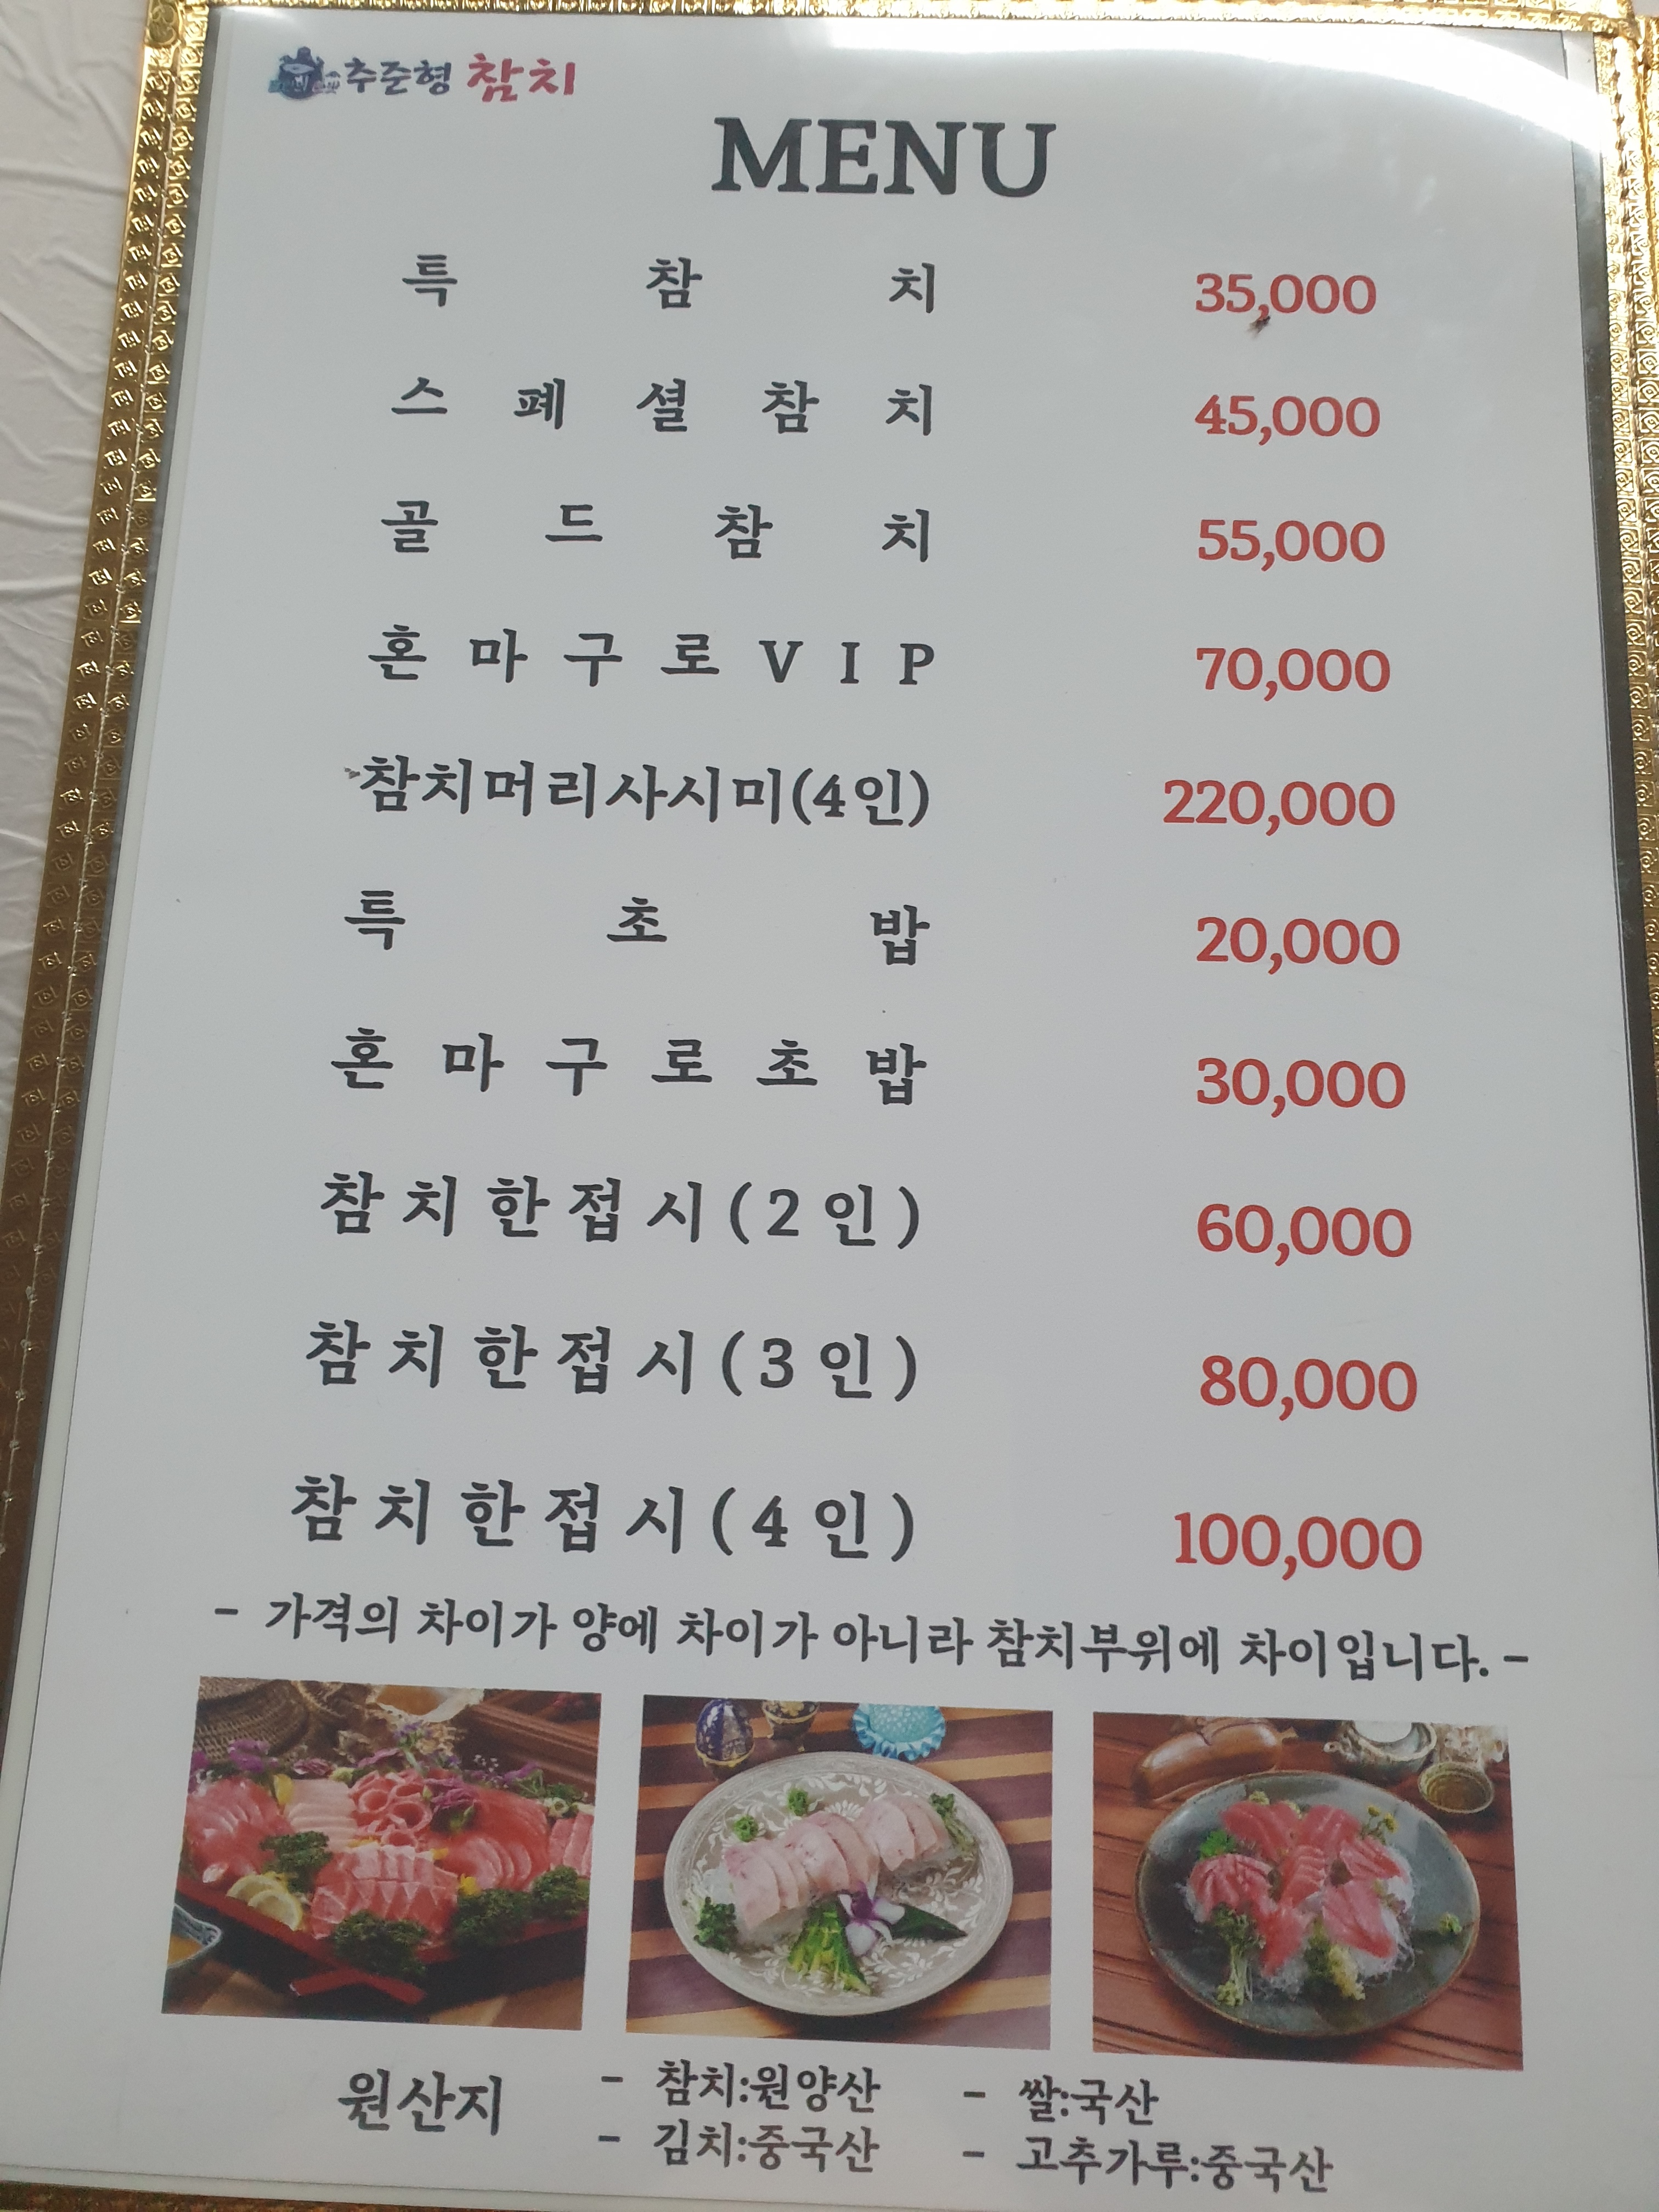 추준형 참치
MENU
특 참 치 35,000
스 폐 셜 참 치 45,000
골 드 참 치 55,000
혼 마 구 로 V I P 70,000
참치머리사시미(4인) 220,000
특 초 밥 20,000
혼 마 구 로 초 밥 30,000
참 치 한 접 시 ( 2 인 ) 60,000
참 치 한 접 시 ( 3 인 ) 80,000
참 치 한 접 시 ( 4 인 ) 100,000
- 가격의 차이가 양에 차이가 아니라 참치부위에 차이입니다. -
원산지
- 참치:원양산 - 쌀:국산
- 김치:중국산 - 고추가루:중국산